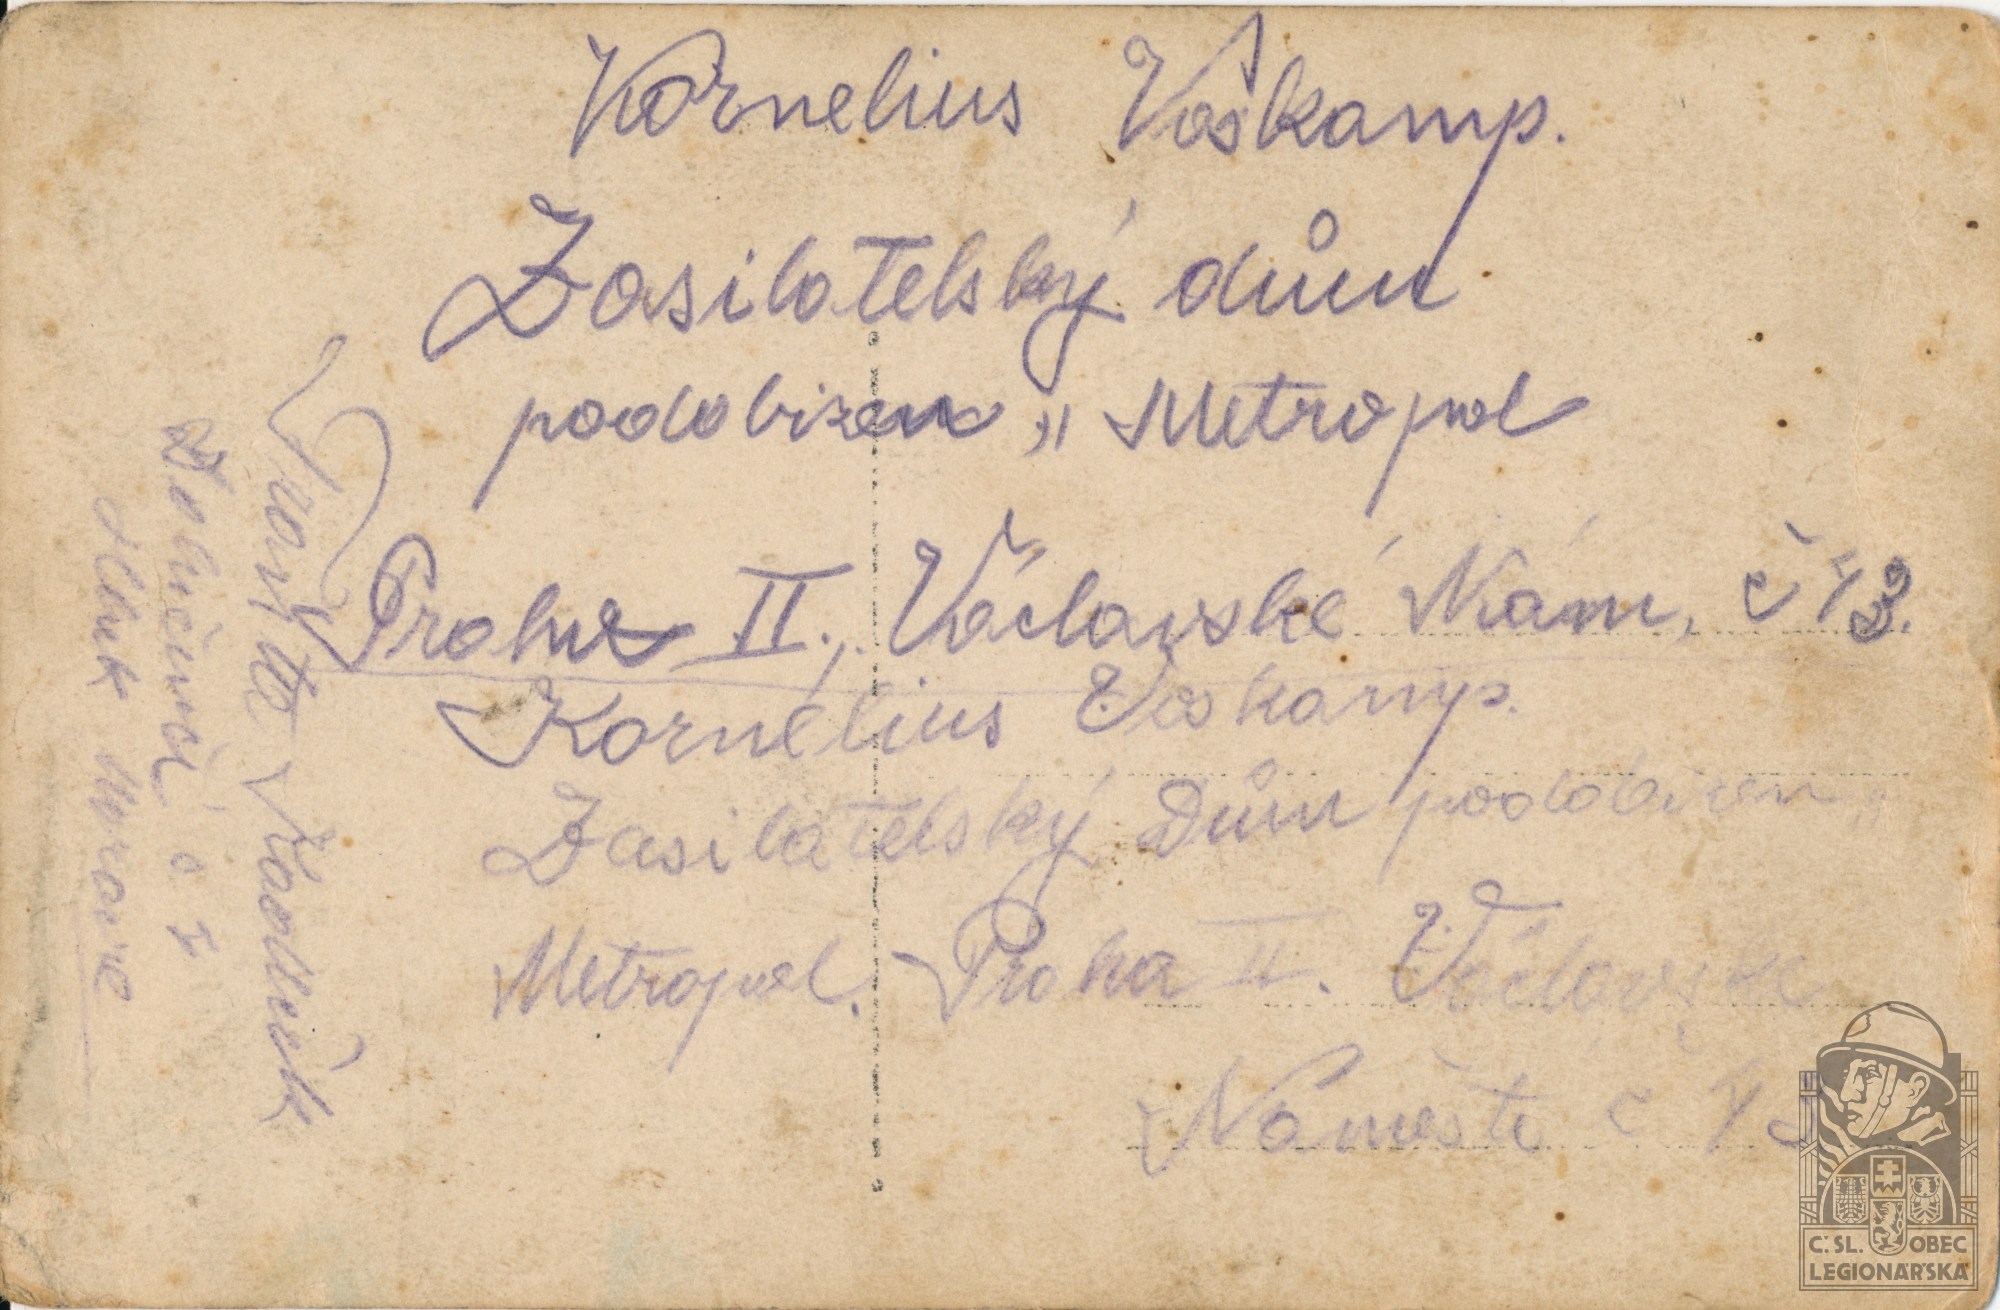 Kornelius Voškamp.
Zasilatelský dům
podobizen „ Metropol
Praha II., Václavské Nám, č 43.
Kornélius Voskamp.
Zasilatelský Dům podobizen „
Metropol. Praha II. Václavské
Náměstí č 43
Kadlčík
č I
C.SL. OBEC
LEGIONÁŘSKÁ